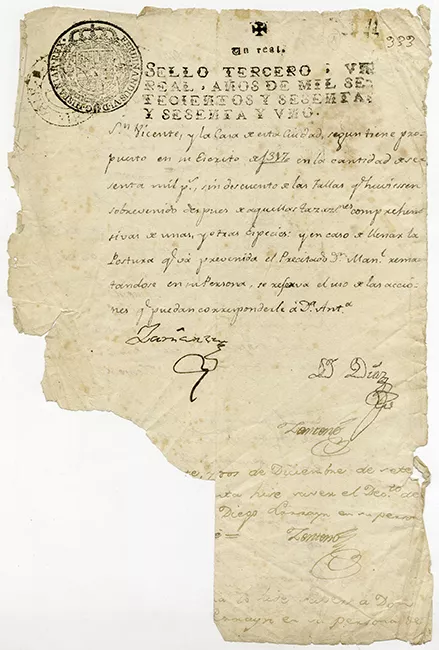 333
Un real.
SELLO TERCERO, VN
REAL, AÑOS DE MIL SE-
TECIENTOS Y SESENTA,
Y SESENTA Y VNO.
Sn Vicente, y la Casa de esta Ciudad, segun tiene pro-
puesto en su Escrito de f317 en la cantidad de se-
senta mil ps, sin descuento de las fallas q huviessen
sobrevenido despues de aquellas tazazes comprehen-
sivas de unas, y otras especies: y en caso de llenar la
Postura q vá prevenida el Precitado Dn Manl rema-
tandose en su Persona, se reserva el uso de las accio-
nes q puedan corresponderle á Da Anta
D Diaz
Zenteno
de Diciembre de sete
hise saver el
Diego en su perso
Zenteno
hise saver a Don
en su persona de